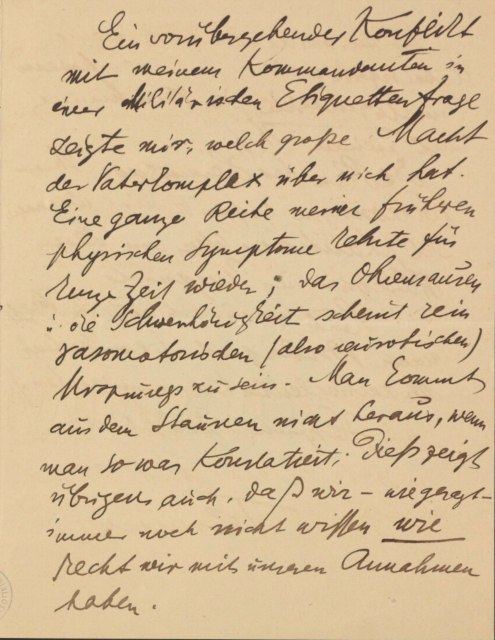 Ein vorübergehender Konflikt
mit meinem Kommandanten in
einer Militärischen Etiquettenfrage
zeigte mir, welch große Macht
der Vaterkomplex über mich hat.
Eine ganze Reihe meiner früheren
physischen Symptome kehrte für
kurze Zeit wieder; das Ohrensausen
u. die Schwerhörigkeit scheint rein
vasomotorischen (also neurotischen)
Ursprungs zu sein. Man kommt
aus dem Staunen nicht heraus, wenn
man so was Konstatiert. Dieß zeigt
übrigens auch, daß wir – wie gesagt –
immer noch nicht wissen wie
Recht wir mit unseren Annahmen
haben.